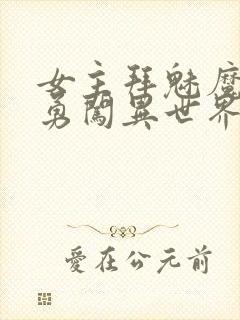 女主拜魅魔
勇闯異世界
爱在公元前